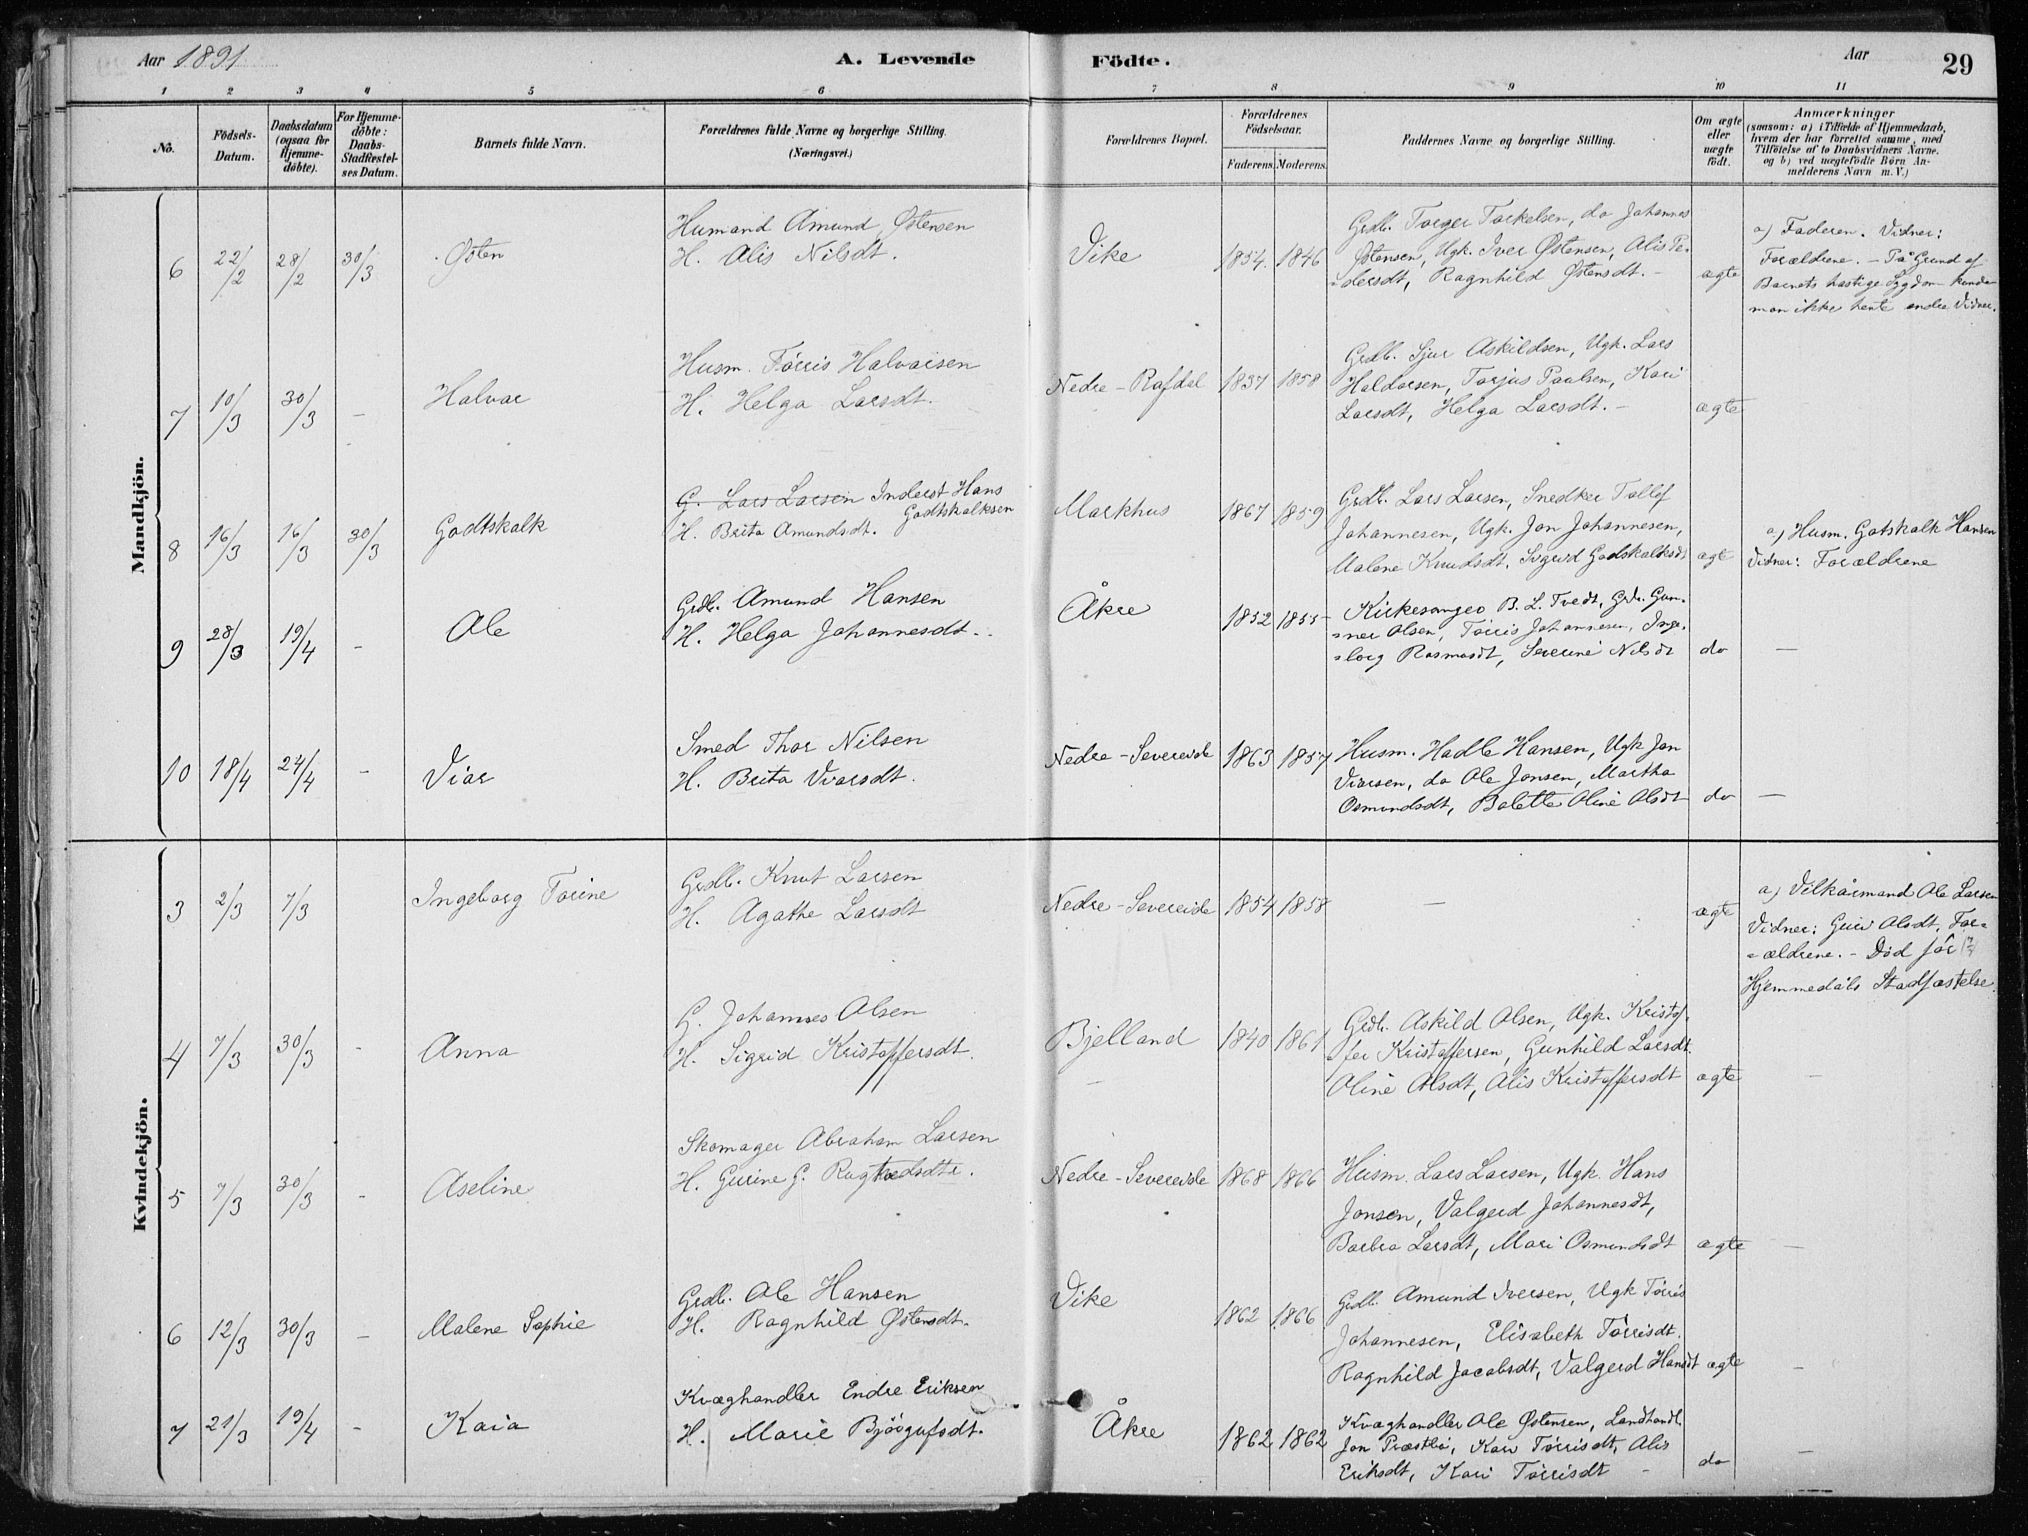 Aar 1891 A. Levende Födte. Aar 29
1 2 3 4 5 6 7 8 9 10 11
No.
Födsels-
Datum.
Daabsdatum
(ogsaa for
Hjemme-
döbte).
For Hjemme-
döbte:
Daabs-
Stadfæstel-
ses Datum.
Barnets fulde Navn.
Forældrenes fulde Navne og borgerlige Stilling.
(Næringsvei.)
Forældrenes Bopæl.
Forældrenes
Födselsaar.
Faderens. Moderens.
Faddernes Navne og borgerlige Stilling.
Om ægte
eller
uægte
født.
Anmærkninger
(saasom: a) i Tilfælde af Hjemmedaab,
hvem der har forrettet samme, med
Tilföielse af to Daabsvidners Navne.
og b) ved uægtefödte Börn An-
melderens Navn m. V.)
Mandkjön.
6 22/2 28/2 30/3 Østen
Husmand Amund Østensen
H. Alis Nilsdt.
Vike 1854. 1846
Grdb. Torger Torkelsen, do Johannes
Østensen, Ugk. Iver Østensen, Alis Pe-
=dersdt, Ragnhild Østensdt. -
ægte
a) Faderen. Vidner:
Forældrene. - På Grund af
Barnets hastige Sygdom kunde
man ikke hente andre Vidner.
7 10/3 30/3 - Halvar
Husm. Tørris Halvorsen
H. Helga Larsdt.
Nedre - Rafdal 1837 1858
Grdb. Sjur Askildsen, Ugk. Lars
Haldorsen, Torjus Paulsen, Kari
Larsdt, Helga Larsdt. -
ægte
8 16/3 16/3 30/3 Godtskalk
G. Lars Larsen Inderst Hans
Godtskalksen
H. Brita Amundsdt.
Markhus 1867 1859
Grdb. Lars Larsen, Snedker Tollef
Johannesen, Ugk. Jon Johannesen,
Malene Knudsdt. Sigrid Godskalksdt
ægte
a) Husm. Gotskalk Hansen
Vidner: Forældrene
9 28/3 19/4 - Ole
Grdb. Amund Hansen
H. Helga Johannesdt. -
Åkre 1852 1855
Kirkesanger B. L. Tvedt, Grb. Gun-
=nar Olsen, Tørris Johannesen, Inge-
=borg Rasmusdt, Severine Nilsdt
do -
10 18/4 24/4 - Viar
Smed Thor Nilsen
H. Brita Viarsdt.
Nedre - Severeide 1863 1857
Husm. Hadle Hansen, Ugk Jon
Viarsen, do Ole Jonsen, Martha
Osmundsdt, Bolette Oline Olsdt
do -
Kvindekjön.
3 2/3 7/3 Ingeborg Torine
Grdb. Knut Larsen
H. Agathe Larsdt
Nedre - Severeide 1854 1858
-
ægte
a) Vilkårmand Ole Larsen
Vidner: Guri Olsdt, For-
=ældrene. - Död för
Hjemmedåbs Stadfæstelse.
4 7/3 30/3 - Anna
G. Johannes Olsen
H. Sigrid Kristoffersdt.
Bjelland 1840 1861
Grdb. Askild Olsen, Ugk. Kristof-
fer Kristoffersen, Gunhild Larsdt.
Oline Olsdt, Alis Kristoffersdt
ægte -
5 7/3 30/3 - Aseline
Skomager Abraham Larsen
H. Gurine G.
Nedre - Severeide 1868 1866
Husm. Lars Larsen, Ugk. Hans
Jonsen, Valgerd Johannesdt,
Barbra Larsdt, Mari Osmundsdt
ægte -
6 12/3 30/3 - Malene Sophie
Grdb. Ole Hansen
H. Ragnhild Østensdt.
Vike 1862 1866
Grdb. Amund Iversen, Ugk Tørris
Johannesen, Elisabeth Tørrisdt.
Ragnhild Jacobsdt, Valgerd Hansdt
ægte -
7 21/3 19/4 - Kaia
Kvæghandler Endre Eriksen
H. Marie Bjørgufsdt.
Åkre 1862 1862
Kvæghandler Ole Østensen, Landhandl.
Jon Præstbø, Kari Tørrisdt, Alis
Eriksdt, Kari Tørrisdt -
do -